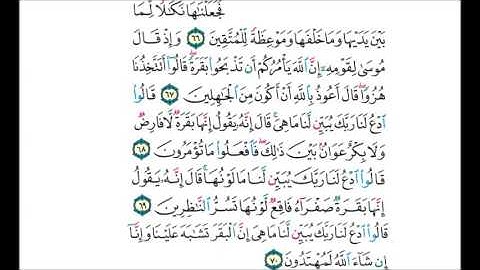 فَجَعَلْنَٰهَا نَكَٰلًا لِّمَا
بَيْنَ يَدَيْهَا وَمَا خَلْفَهَا وَمَوْعِظَةً لِّلْمُتَّقِينَ ٦٦ وَإِذْ قَالَ
مُوسَىٰ لِقَوْمِهِۦٓ إِنَّ ٱللَّهَ يَأْمُرُكُمْ أَن تَذْبَحُوا۟ بَقَرَةً ۖ قَالُوٓا۟ أَتَتَّخِذُنَا
هُزُوًا ۖ قَالَ أَعُوذُ بِٱللَّهِ أَنْ أَكُونَ مِنَ ٱلْجَٰهِلِينَ ٦٧ قَالُوا۟
ٱدْعُ لَنَا رَبَّكَ يُبَيِّن لَّنَا مَا هِىَ ۚ قَالَ إِنَّهُۥ يَقُولُ إِنَّهَا بَقَرَةٌ لَّا فَارِضٌ
وَلَا بِكْرٌ عَوَانٌۢ بَيْنَ ذَٰلِكَ ۖ فَٱفْعَلُوا۟ مَا تُؤْمَرُونَ ٦٨
قَالُوا۟ ٱدْعُ لَنَا رَبَّكَ يُبَيِّن لَّنَا مَا لَوْنُهَا ۚ قَالَ إِنَّهُۥ يَقُولُ
إِنَّهَا بَقَرَةٌ صَفْرَآءُ فَاقِعٌ لَّوْنُهَا تَسُرُّ ٱلنَّٰظِرِينَ ٦٩
قَالُوا۟ ٱدْعُ لَنَا رَبَّكَ يُبَيِّن لَّنَا مَا هِىَ إِنَّ ٱلْبَقَرَ تَشَٰبَهَ عَلَيْنَا وَإِنَّآ
إِن شَآءَ ٱللَّهُ لَمُهْتَدُونَ ٧٠